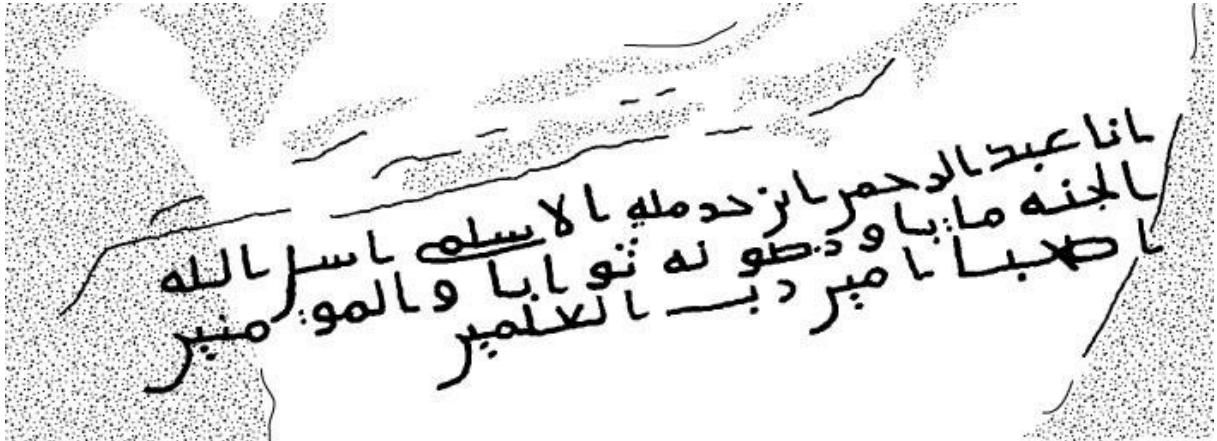 انا عبد الرحمن ابن حرمله الاسلمي اسل الله
الجنه مابا ورضونه ثوابا والمومنين
اصحبا امين رب العلمين